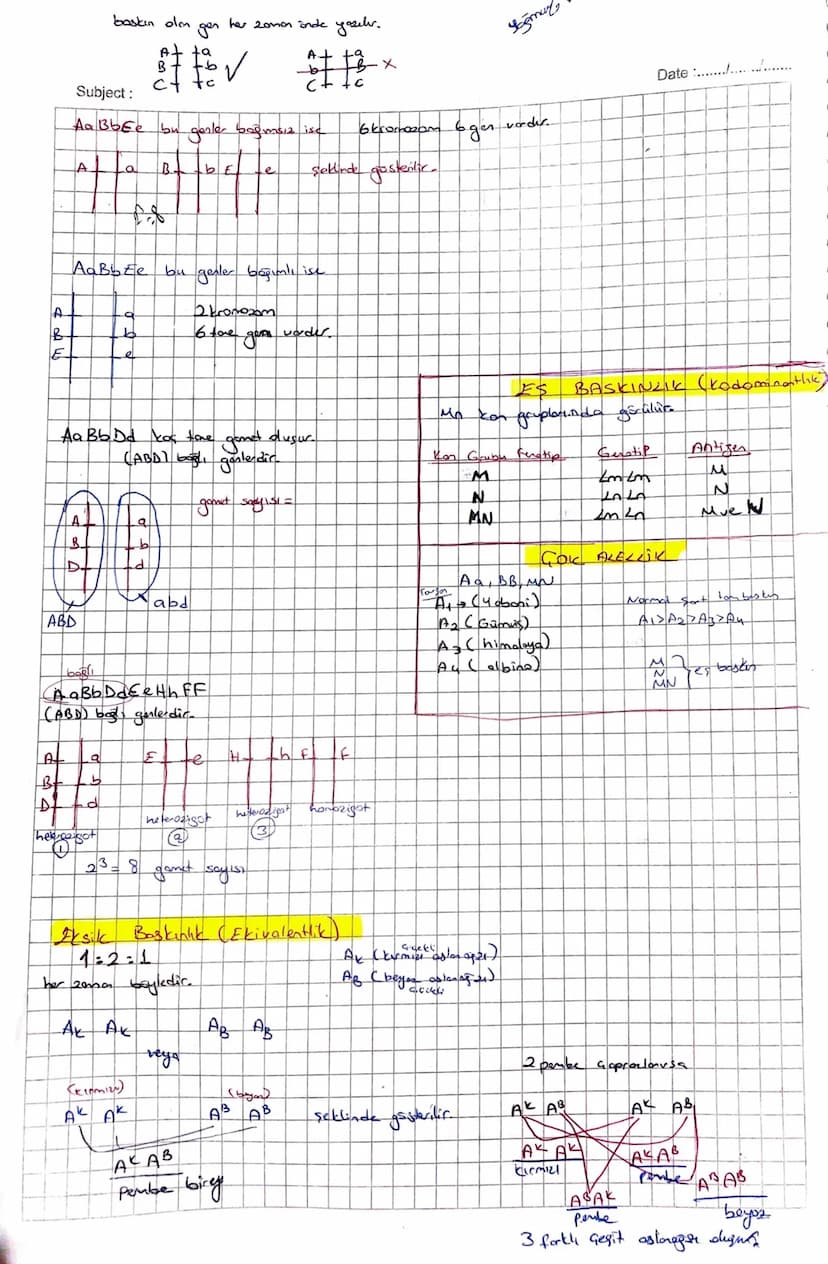 baskın olan gen her zaman önde yazılır.
A a
B b ✓
C c
A a
b B ×
C c
Subject :
Date :......./......./.......
AaBbEe bu genler bağımsız ise 6 kromozom 6 gen vardır.
A a B b E e şeklinde gösterilir.
AaBbEe bu genler bağımlı ise
A a 2 kromozom
B b 6 tane gen vardır.
E e
EŞ BASKINLIK (Kodominantlık)
Mn kan gruplarında görülür.
Kan Grubu Fenotip Genotip Antigen
M LmLm M
N LnLn N
MN LmLn M ve N
AaBbDd kaç tane gamet oluşur.
(ABD) bağlı genlerdir.
gamet sayısı =
A a
B b
D d
ABD abd
ÇOK ALELLİK
Aa, BB, MN
Tavşan
A1 → (Yabani)
A2 (Gümüş)
A3 (himalaya)
A4 (albino)
Normal şart tam baskın
A1>A2>A3>A4
M
N
MN
eş baskın
bağlı
AaBbDdEeHhFF
(ABD) bağlı genlerdir.
A a E e H h F f
B b
D d
heterozigot heterozigot heterozigot homozigot
1 2 3
2³ = 8 gamet sayısı
Eksik Baskınlık (Ekivalentlik)
1:2:1
her zaman böyledir.
AK (kırmızı çiçekli aslanağzı)
AB (beyaz çiçekli aslanağzı)
AK AK AB AB
veya
(kırmızı) (beyaz)
Aᴷ Aᴷ Aᴮ Aᴮ şeklinde gösterilir.
Aᴷ Aᴮ
Pembe birey
2 pembe çaprazlanırsa
Aᴷ Aᴮ Aᴷ Aᴮ
Aᴷ Aᴷ
kırmızı
Aᴷ Aᴮ
pembe
Aᴮ Aᴷ
pembe
Aᴮ Aᴮ
beyaz
3 farklı çeşit aslanağzı oluşur